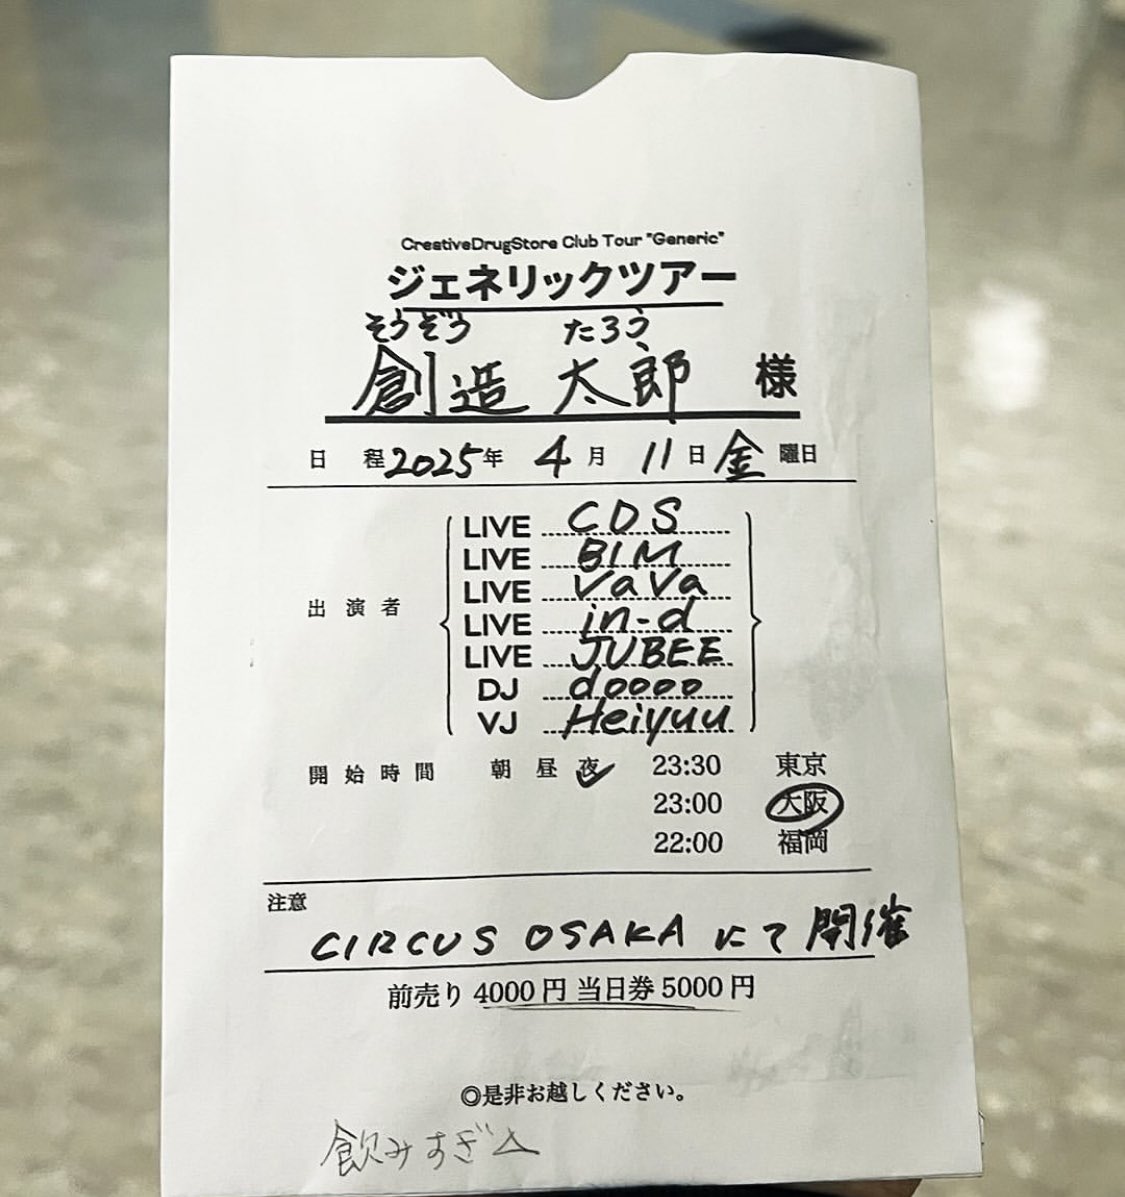 CreativeDrugStore Club Tour "Generic"
ジェネリックツアー
そうぞう たろう
創造 太郎 様
日 程 2025年 4月 11日 金曜日
出演者
LIVE CDS
LIVE BIM
LIVE VaVa
LIVE in-d
LIVE JUBEE
DJ doooo
VJ Heiyuu
開始時間 朝 昼 夜 23:30 東京
23:00 大阪
22:00 福岡
注意
CIRCUS OSAKA にて開催
前売り 4000 円 当日券 5000 円
◎是非お越しください。
飲みすぎ△